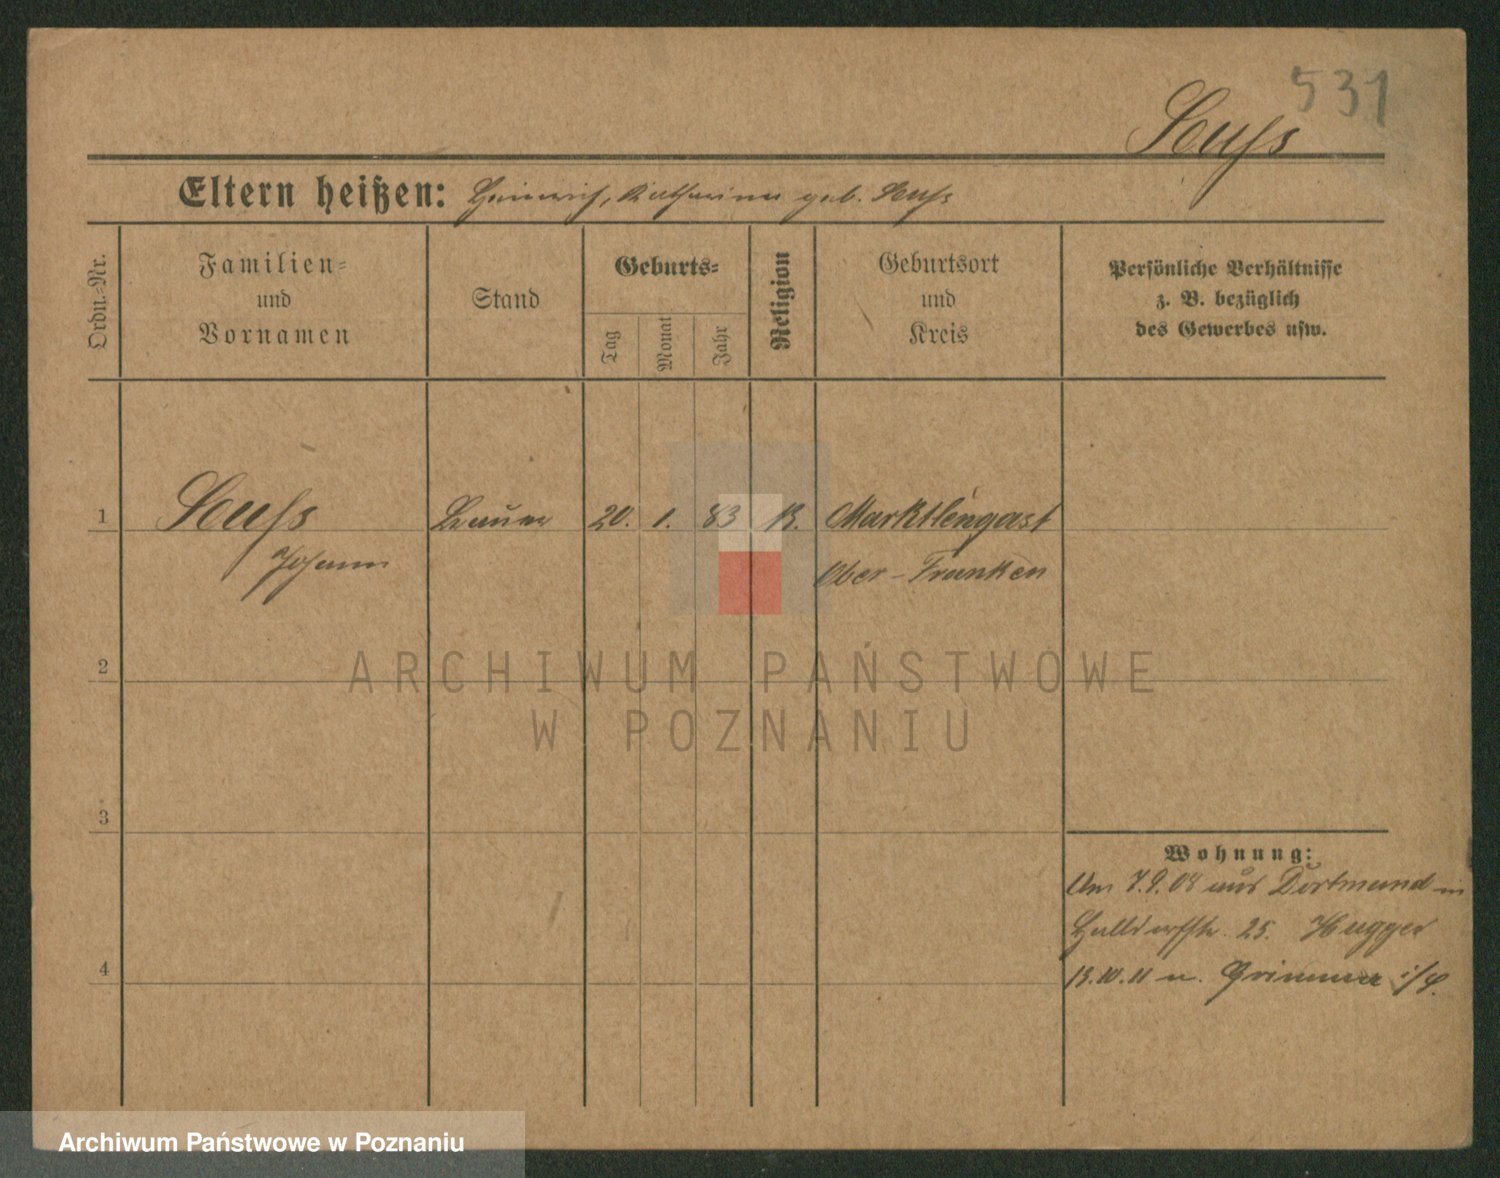 531
Eltern heißen: Heinrich, Katharina geb.
Ordn.-Nr.
Familien-
und
Vornamen
Stand
Geburts-
Tag
Monat
Jahr
Religion
Geburtsort
und
Kreis
Persönliche Verhältnisse
z. B. bezüglich
des Gewerbes usw.
1
20. 1. 83 Marktleugast
Johann
Ober-Franken
2
3
4
Wohnung:
Am 7.9.08 aus Dortmund in
25. Hugger
i/S.
ARCHIWUM PAŃSTWOWE
W POZNANIU
Archiwum Państwowe w Poznaniu